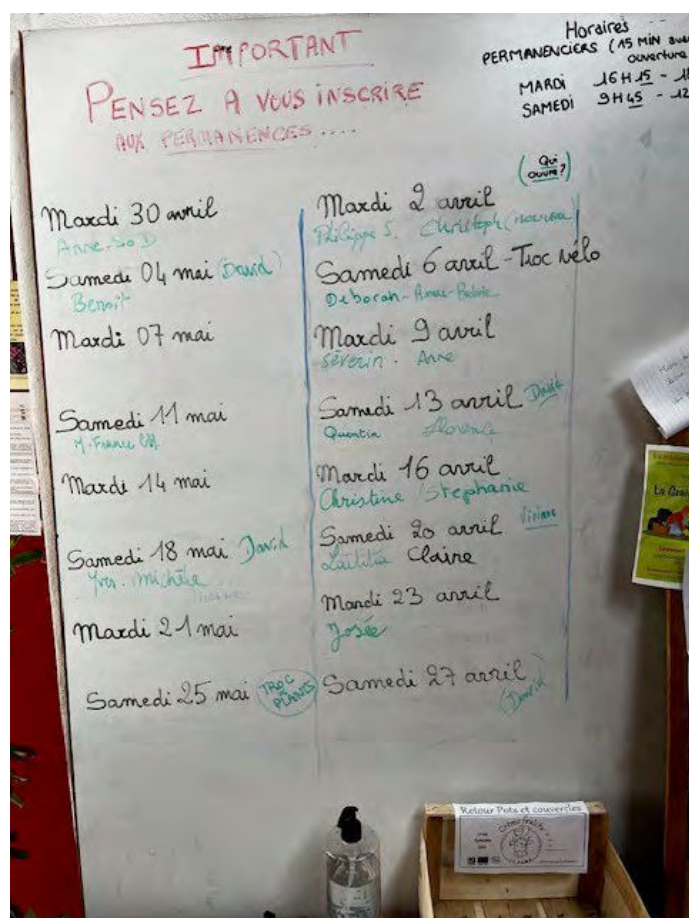 IMPORTANT
PENSEZ A VOUS INSCRIRE
AUX PERMANENCES....
Horaires
PERMANENCIERS (15 MIN
ouverture
MARDI 16H15 -
SAMEDI 9H45 - 12
Mardi 30 avril
Anne-So D
Samedi 04 mai (David)
Benoit
Mardi 07 mai
Samedi 11 mai
M. France
Mardi 14 mai
Samedi 18 mai David
Yves. Michèle
Mardi 21 mai
Samedi 25 mai TROC
PLANTS
(Qui
ouvre?)
Mardi 2 avril
Philippe S. Christoph
Samedi 6 avril - Troc vélo
Deborah - Anne-
Mardi 9 avril
Séverin. Anne
Samedi 13 avril David
Quentin Florence
Mardi 16 avril
Christine Stephanie
Samedi 20 avril Viviane
Laëtitia Claire
Mardi 23 avril
Josée
Samedi 27 avril
(David)
Retour Pots et couvercles